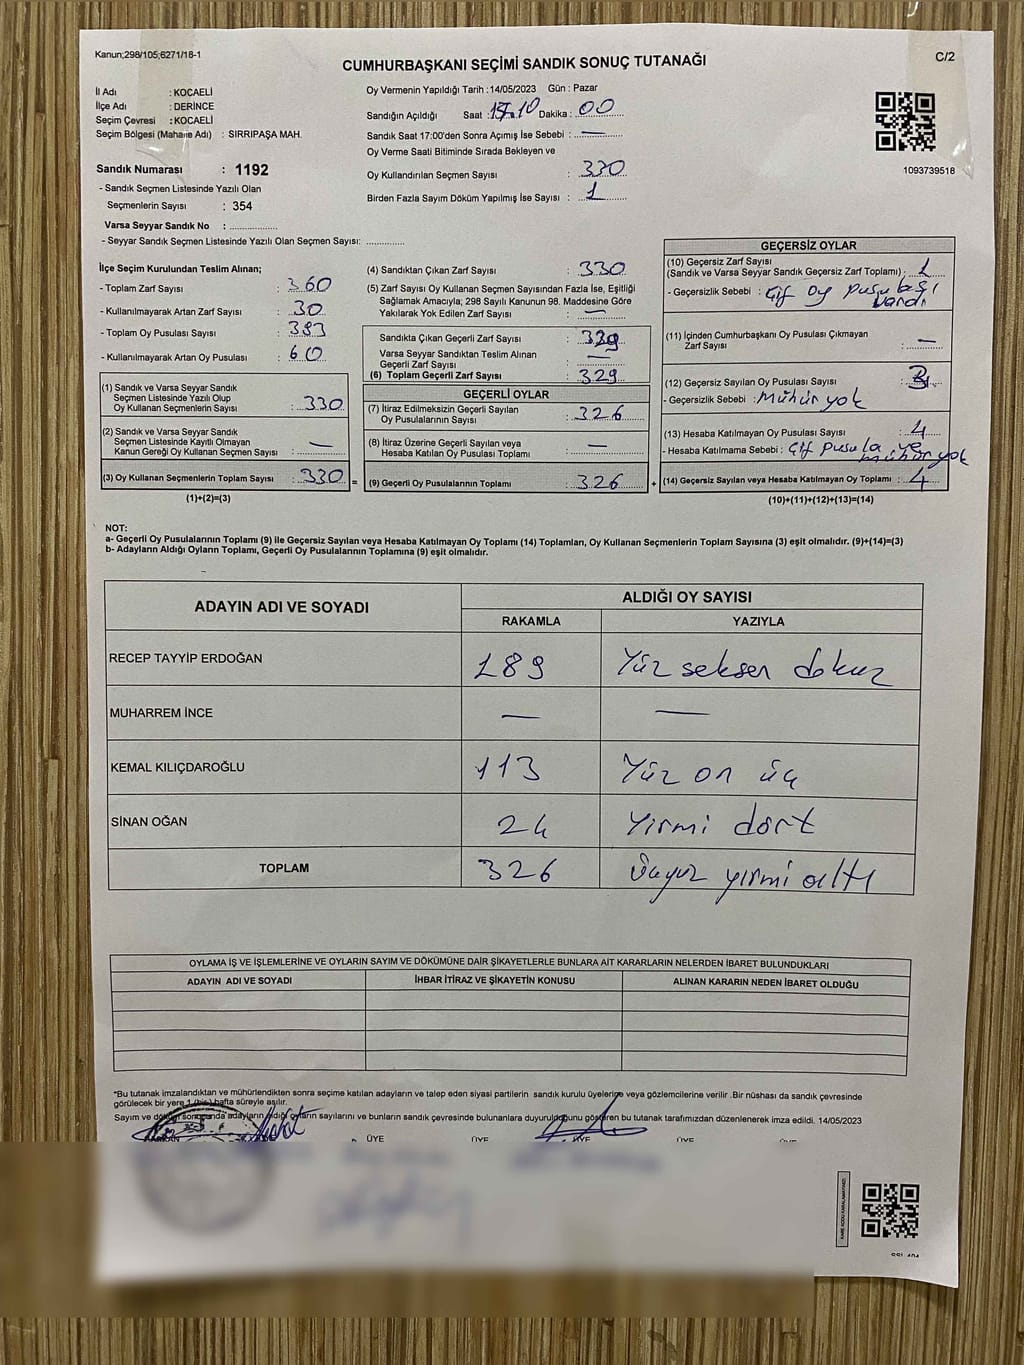 Kanun;298/105;6271/18-1
C/2
CUMHURBAŞKANI SEÇİMİ SANDIK SONUÇ TUTANAĞI
İl Adı : KOCAELİ
İlçe Adı : DERİNCE
Seçim Çevresi : KOCAELİ
Seçim Bölgesi (Mahalle Adı) : SIRRIPAŞA MAH.
Sandık Numarası : 1192
- Sandık Seçmen Listesinde Yazılı Olan
Seçmenlerin Sayısı : 354
Varsa Seyyar Sandık No : ..................
- Seyyar Sandık Seçmen Listesinde Yazılı Olan Seçmen Sayısı: ..............
Oy Vermenin Yapıldığı Tarih : 14/05/2023 Gün : Pazar
Sandığın Açıldığı Saat : 17.10 Dakika : 00
Sandık Saat 17:00'den Sonra Açımış İse Sebebi : —
Oy Verme Saati Bitiminde Sırada Bekleyen ve
Oy Kullandırılan Seçmen Sayısı : 330
Birden Fazla Sayım Döküm Yapılmış İse Sayısı : 1
1093739518
İlçe Seçim Kurulundan Teslim Alınan;
- Toplam Zarf Sayısı : 360
- Kullanılmayarak Artan Zarf Sayısı : 30
- Toplam Oy Pusulası Sayısı : 393
- Kullanılmayarak Artan Oy Pusulası : 60
(1) Sandık ve Varsa Seyyar Sandık
Seçmen Listesinde Yazılı Olup
Oy Kullanan Seçmenlerin Sayısı : 330
(2) Sandık ve Varsa Seyyar Sandık
Seçmen Listesinde Kayıtlı Olmayan
Kanun Gereği Oy Kullanan Seçmen Sayısı : —
(3) Oy Kullanan Seçmenlerin Toplam Sayısı : 330 =
(1)+(2)=(3)
(4) Sandıktan Çıkan Zarf Sayısı : 330
(5) Zarf Sayısı Oy Kullanan Seçmen Sayısından Fazla İse, Eşitliği
Sağlamak Amacıyla; 298 Sayılı Kanunun 98. Maddesine Göre
Yakılarak Yok Edilen Zarf Sayısı : —
Sandıkta Çıkan Geçerli Zarf Sayısı : 329
Varsa Seyyar Sandıktan Teslim Alınan
Geçerli Zarf Sayısı : —
(6) Toplam Geçerli Zarf Sayısı : 329
GEÇERLİ OYLAR
(7) İtiraz Edilmeksizin Geçerli Sayılan
Oy Pusulalarının Sayısı : 326
(8) İtiraz Üzerine Geçerli Sayılan veya
Hesaba Katılan Oy Pusulası Toplamı : —
(9) Geçerli Oy Pusulalarının Toplamı : 326 +
GEÇERSİZ OYLAR
(10) Geçersiz Zarf Sayısı
(Sandık ve Varsa Seyyar Sandık Geçersiz Zarf Toplamı) : 1
- Geçersizlik Sebebi : Çif oy pusulası
vardı
(11) İçinden Cumhurbaşkanı Oy Pusulası Çıkmayan
Zarf Sayısı : —
(12) Geçersiz Sayılan Oy Pusulası Sayısı : 3
- Geçersizlik Sebebi : Mühür yok
(13) Hesaba Katılmayan Oy Pusulası Sayısı : 4
- Hesaba Katılmama Sebebi : Çif pusula ve
mühür yok
(14) Geçersiz Sayılan veya Hesaba Katılmayan Oy Toplamı : 4
(10)+(11)+(12)+(13)=(14)
NOT:
a- Geçerli Oy Pusulalarının Toplamı (9) ile Geçersiz Sayılan veya Hesaba Katılmayan Oy Toplamı (14) Toplamları, Oy Kullanan Seçmenlerin Toplam Sayısına (3) eşit olmalıdır. (9)+(14)=(3)
b- Adayların Aldığı Oyların Toplamı, Geçerli Oy Pusulalarının Toplamına (9) eşit olmalıdır.
ADAYIN ADI VE SOYADI
ALDIĞI OY SAYISI
RAKAMLA YAZIYLA
RECEP TAYYİP ERDOĞAN 189 Yüz seksen dokuz
MUHARREM İNCE — —
KEMAL KILIÇDAROĞLU 113 Yüz on üç
SİNAN OĞAN 24 Yirmi dört
TOPLAM 326 Üçyüz yirmi altı
OYLAMA İŞ VE İŞLEMLERİNE VE OYLARIN SAYIM VE DÖKÜMÜNE DAİR ŞİKAYETLERLE BUNLARA AİT KARARLARIN NELERDEN İBARET BULUNDUKLARI
ADAYIN ADI VE SOYADI İHBAR İTİRAZ VE ŞİKAYETİN KONUSU ALINAN KARARIN NEDEN İBARET OLDUĞU
*Bu tutanak imzalandıktan ve mühürlendikten sonra seçime katılan adayların ve talep eden siyasi partilerin sandık kurulu üyelerine veya gözlemcilerine verilir .Bir nüshası da sandık çevresinde
görülecek bir yere 1 (bir) hafta süreyle asılır.
Sayım ve döküm sonucunda adayların aldığı oyların sayılarını ve bunların sandık çevresinde bulunanlara duyurulduğunu gösteren bu tutanak tarafımızdan düzenlenerek imza edildi. 14/05/2023
ÜYE ÜYE ÜYE ÜYE ÜYE